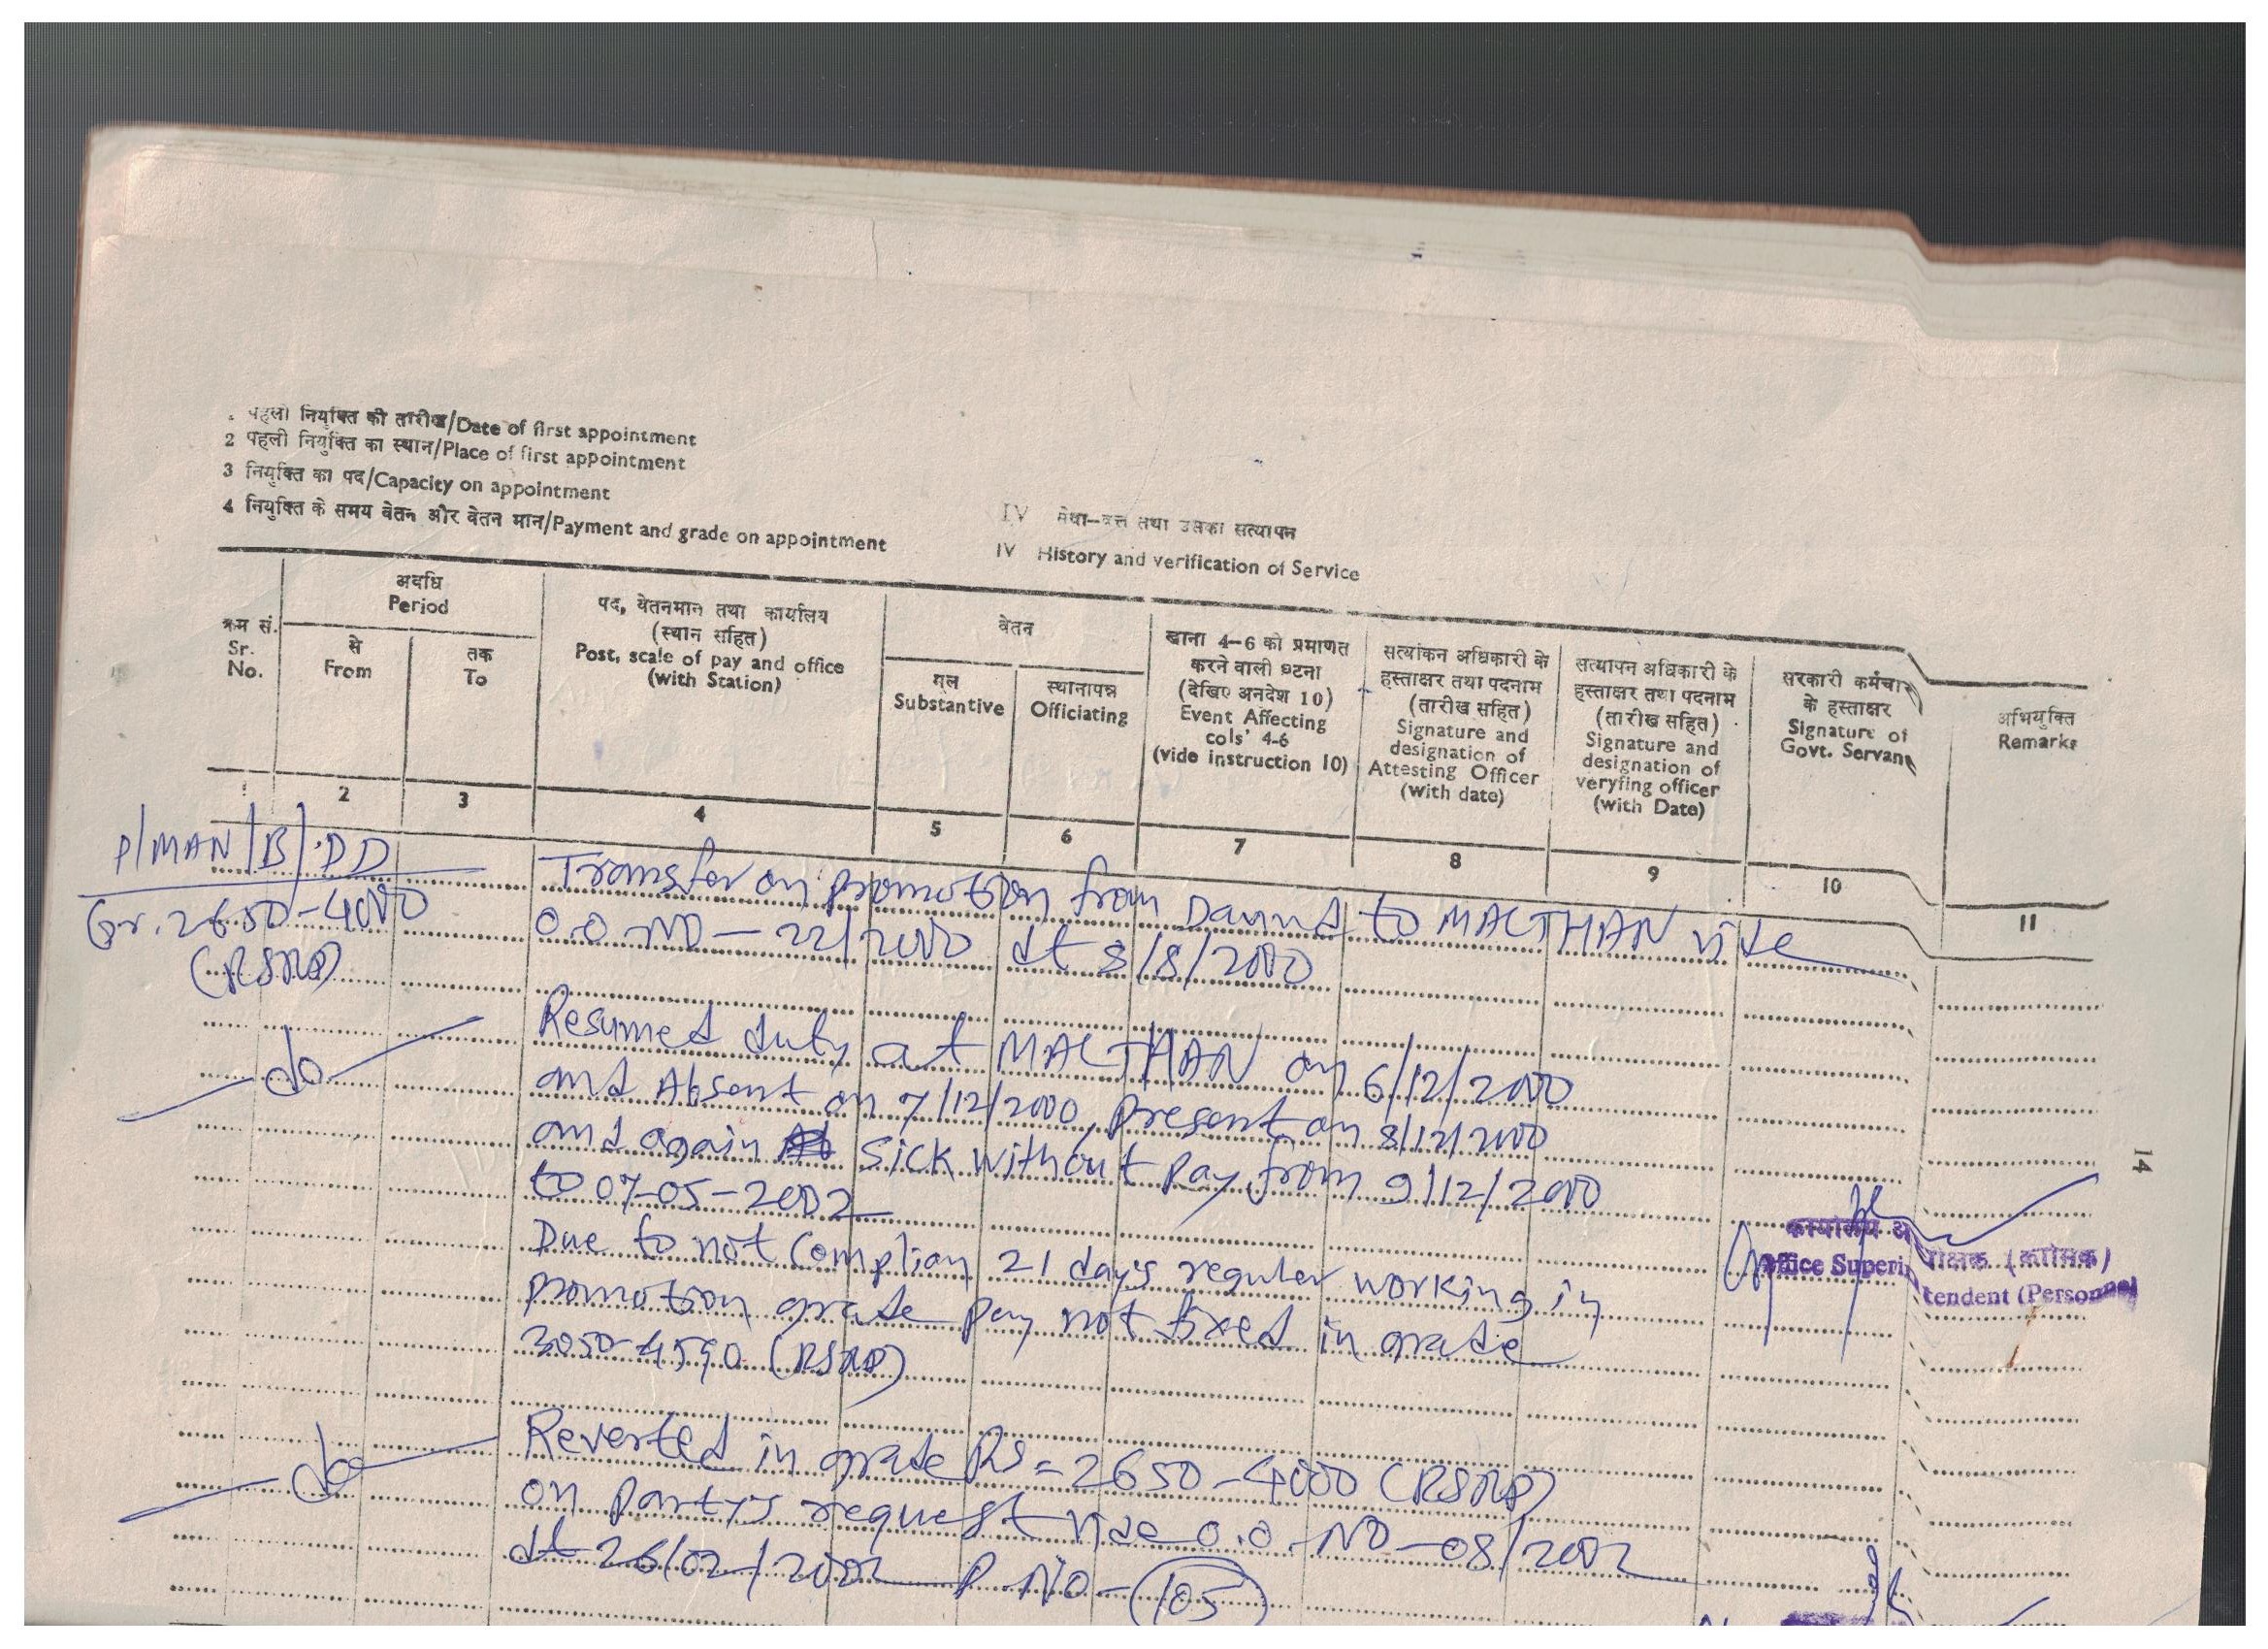 1 पहली नियुक्ति की तारीख/Date of first appointment
2 पहली नियुक्ति का स्थान/Place of first appointment
3 नियुक्ति का पद/Capacity on appointment
4 नियुक्ति के समय वेतन और वेतन मान/Payment and grade on appointment
IV सेवा-वृत्त तथा उसका सत्यापन
IV History and verification of Service
क्रम सं.
Sr.
No.
अवधि
Period
से
From
तक
To
पद, वेतनमान तथा कार्यालय
(स्थान सहित)
Post, scale of pay and office
(with Station)
वेतन
मूल
Substantive
स्थानापन्न
Officiating
खाना 4-6 को प्रमाणत
करने वाली घटना
(देखिए अनदेश 10)
Event Affecting
cols' 4-6
(vide instruction 10)
सत्यांकन अधिकारी के
हस्ताक्षर तथा पदनाम
(तारीख सहित)
Signature and
designation of
Attesting Officer
(with date)
सत्यापन अधिकारी के
हस्ताक्षर तथा पदनाम
(तारीख सहित)
Signature and
designation of
veryfing officer
(with Date)
सरकारी कर्मचा
के हस्ताक्षर
Signature of
Govt. Servan
अभियुक्ति
Remarks
1 2 3 4 5 6 7 8 9 10 11
P/MAN/B/DD
Gr. 2650-4000
(RSRP)
Transfer on promotion from Daund to MALTHAN vide
O.O NO - 22/2000 dt 8/8/2000
do
Resumed duty at MALTHAN on 6/12/2000
and Absent on 7/12/2000, present on 8/12/2000
and again sick without pay from 9/12/2000
to 07-05-2002
Due to not complian 21 day's reguler working in
promotion grade pay not fixed in grade
3050-4590 (RSRP)
कार्यालय अ
धीक्षक (कार्मिक)
Office Superin
tendent (Personnel
14
do
Reverted in grade Rs = 2650-4000 (RSRP)
on party's request vide O.O. NO - 08/2002
dt 26/02/2002 P. No - 105